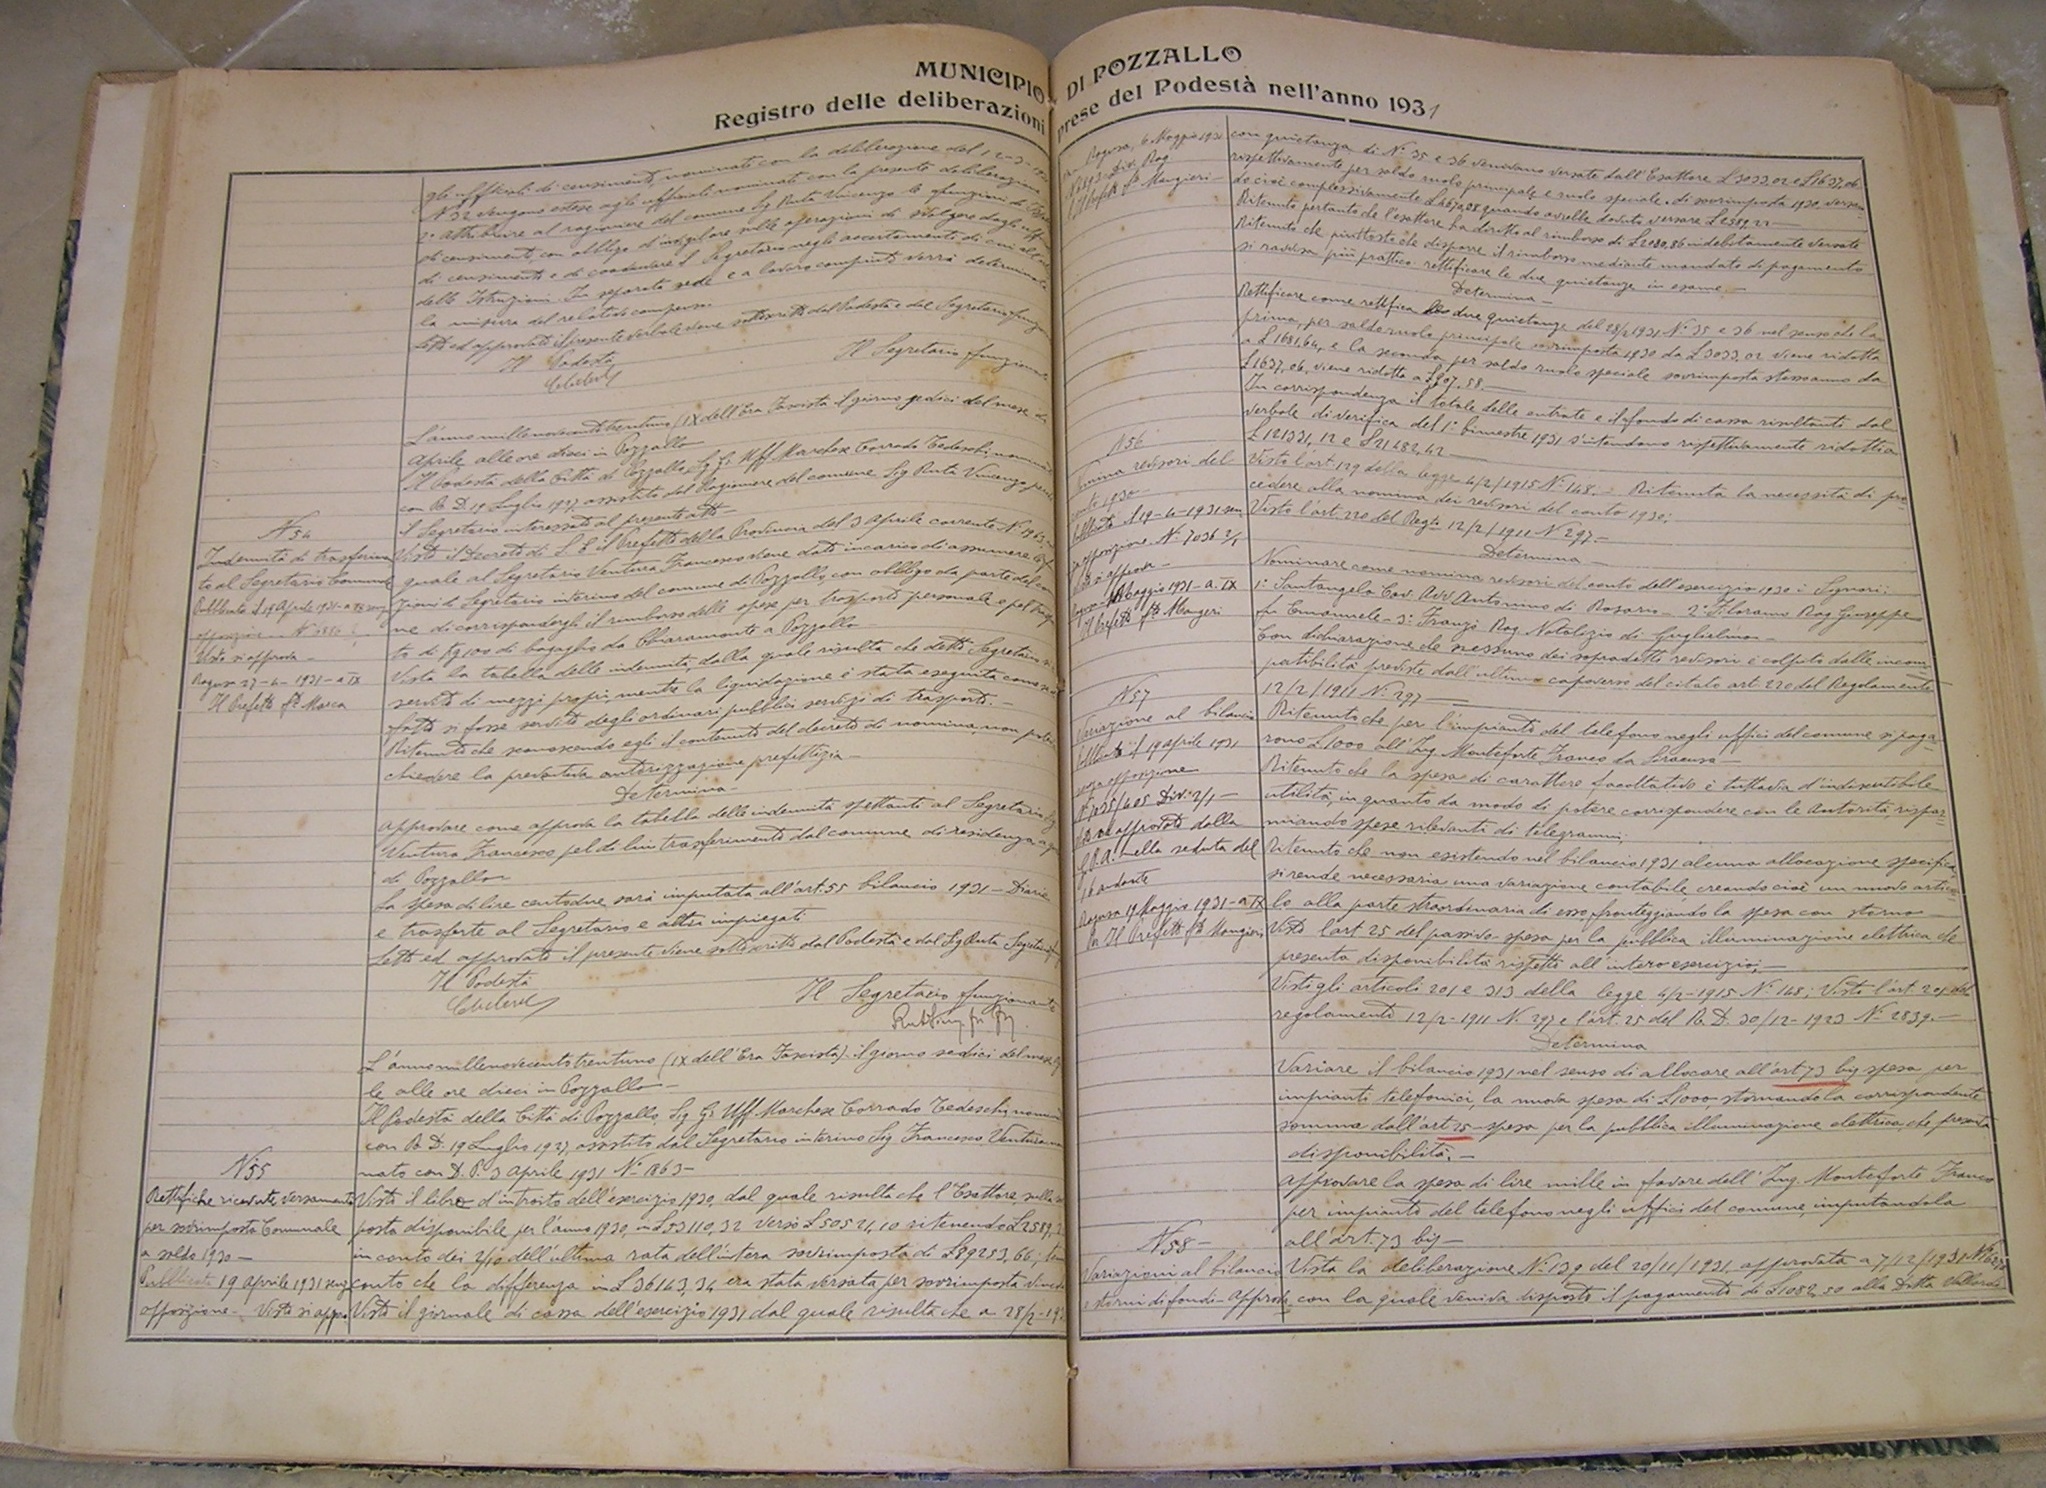 MUNICIPIO DI POZZALLO
Registro delle deliberazioni prese del Podestà nell'anno 1931
gli ufficiali di censimento, nominati con la deliberazione del 12-3-
N 32 vengono estese agli ufficiali nominati con la presente deliberazione
2° attribuire al ragioniere del comune Sig Ruta Vincenzo le funzioni di
di censimento, con obbligo d'invigilare sulle operazioni di
di censimento e di coadiuvare il Segretario negli accertamenti di cui
delle Istruzioni. In separata sede e a lavoro compiuto verrà determinata
la misura del relativo compenso.
Letto ed approvato il presente verbale viene sottoscritto dal Podestà e dal Segretario
Il Podestà
Il Segretario funzionante
L'anno millenovecentotrentuno (IX dell'Era Fascista il giorno sedici del mese di
Aprile alle ore dieci in Pozzallo
Il Podestà della Città di Pozzallo Sig Gr Uff Marchese Corrado Tedeschi, nominato
con R. D. 19 Luglio 1927, assistito dal Ragioniere del comune Sig Ruta Vincenzo
il Segretario interessato al presente atto
N 54
Indennità di trasferimen
to al Segretario Comunale
Pubblicata il 19 Aprile 1931-a IX senza
opposizione
Visto si approva -
Ragusa 27-4-1931-a IX
Il Prefetto fto Marca
Visto il Decreto di S. E. il Prefetto della Provincia del 3 Aprile corrente N. 1863,
quale al Segretario Ventura Francesco viene dato incarico di assumere le
zioni di Segretario interino del comune di Pozzallo, con obbligo da parte del
ne di corrispondergli il rimborso delle spese per trasporto personale e pel
to di Kg 100 di bagaglio da Chiaramonte a Pozzallo
Vista la tabella delle indennità, dalla quale risulta che detto Segretario si
servito di mezzi propri, mentre la liquidazione è stata eseguita come se
fatto si fosse servito degli ordinari pubblici servizi di trasporto. -
Ritenuto che sconoscendo egli il contenuto del decreto di nomina, non poteva
chiedere la preventiva autorizzazione prefettizia -
Determina -
Approvare come approva la tabella delle indennità spettanti al Segretario Sig
Ventura Francesco pel di lui trasferimento dal comune di residenza a
di Pozzallo
La spesa di lire centodue sarà imputata all'art. 55 bilancio 1931 - Diarie
e trasferte al Segretario e altri impiegati
Letto ed approvato il presente viene sottoscritto dal Podestà e dal Sig Ruta Segretario
Il Podestà
Il Segretario funzionante
L'anno millenovecentotrentuno (IX dell'Era Fascista) il giorno sedici del mese
le alle ore dieci in Pozzallo -
Il Podestà della Città di Pozzallo, Sig Gr Uff Marchese Corrado Tedeschi, nominato
con R. D. 19 Luglio 1927, assistito dal Segretario interino Sig Francesco Ventura
nato con D. P. 3 Aprile 1931 N. 1863 -
N 55
Rettifiche ricevute versamento
per sovrimposta Comunale
a saldo 1930 -
Pubblicata 19 Aprile 1931 senza
opposizione - Visto si approva
Visto il libro d'introito dell'esercizio 1930, dal quale risulta che l'Esattore, sulla
posta disponibile per l'anno 1930, in L 53110,32 versò L 50521,10 ritenendo L 2589,
in conto dei 2/10 dell'ultima rata dell'intera sovrimposta di L 89253,66;
conto che la differenza in L 36143,34 era stata versata per sovrimposta
Visto il giornale di cassa dell'esercizio 1931 dal quale risulta che a 28/2-193
Ragusa, 6 Maggio 1931
Il Prefetto fto Mangieri -
con quietanza di N. 35 e 36 venivano versate dall'Esattore L 3033,02 e L 1637,06
rispettivamente per saldo ruolo principale e ruolo speciale di sovrimposta 1930, versan
do cioè complessivamente L 4670,08 quando avrebbe dovuto versare L 2589,22 -
Ritenuto pertanto che l'esattore ha diritto al rimborso di L 2080,86 indebitamente versate
Ritenuto che piuttosto che disporre il rimborso mediante mandato di pagamento
si ravvisa più pratico rettificare le due quietanze in esame -
Determina -
Rettificare come rettifica le due quietanze del 28/2 1931 N. 35 e 36 nel senso che la
prima, per saldo ruolo principale sovrimposta 1930 da L 3033,02 viene ridotta
a L 1681,64, e la seconda per saldo ruolo speciale sovrimposta stesso anno da
L 1637,06, viene ridotta a L 907,58. -
In corrispondenza il totale delle entrate e il fondo di cassa risultanti dal
verbale di verifica del 1° bimestre 1931 s'intendono rispettivamente ridotti a
L 121331,12 e L 21482,42 -
N 56
Nomina revisori del
conto 1930 -
Pubblicata il 19-4-1931 senza
opposizione N. 7036 2/1
Visto si approva -
Ragusa Maggio 1931-a. IX
Il Prefetto fto Mangieri
Visto l'art. 129 della legge 4/2/1915 N. 148; - Ritenuta la necessità di pro
cedere alla nomina dei revisori del conto 1930;
Visto l'art. 220 del Regto 12/2/1911 N 297. -
Determina -
Nominare come nomina revisori del conto dell'esercizio 1930 i Signori:
1° Santangelo Cav. Avv Antonino di Rosario - 2° Rag Giuseppe
fu Emanuele - 3° Franzò Rag. Natalizio di Guglielmo -
Con dichiarazione che nessuno dei sopradetti revisori è colpito dalle incom
patibilità previste dall'ultimo capoverso del citato art. 220 del Regolamento
12/2/1911 N. 297 -
N 57
Variazione al bilancio
Pubblicata il 19 aprile 1931
senza opposizione
N. 7035/605 Div. 2/1 -
approvata dalla
G.P.A. nella seduta del
16 andante
Ragusa 19 Maggio 1931-a IX
Per Il Prefetto fto Mangieri
Ritenuto che per l'impianto del telefono negli uffici del comune si paga
rono L 1000 all'Ing. Monteforte Franco da Siracusa -
Ritenuto che la spesa di carattere facoltativo è tuttavia d'indiscutibile
utilità in quanto dà modo di potere corrispondere con le Autorità rispar
miando spese rilevanti di telegrammi;
Ritenuto che non esistendo nel bilancio 1931 alcuna allocazione specifica
si rende necessaria una variazione contabile, creando cioè un nuovo artico
lo alla parte straordinaria di esso, fronteggiando la spesa con storno -
Visto l'art 25 del passivo - spesa per la pubblica illuminazione elettrica che
presenta disponibilità rispetto all'intero esercizio; -
Visti gli articoli 201 e 313 della legge 4/2-1915 N. 148; Visto l'art. 201 del
regolamento 12/2-1911 N. 297 e l'art. 25 del R. D. 30/12-1923 N. 2839. -
Determina
Variare il bilancio 1931 nel senso di allocare all'art 73 bis spesa per
impianti telefonici, la nuova spesa di L 1000, stornando la corrispondente
somma dall'art 25 - spesa per la pubblica illuminazione elettrica, che presenta
disponibilità. -
Approvare la spesa di lire mille in favore dell'Ing. Monteforte Franco
per impianto del telefono negli uffici del comune, imputandola
all'art. 73 bis -
N 58 -
Variazioni al bilancio
e storni di fondi - Approva
Vista la deliberazione N. 139 del 20/11/1931, approvata a 7/12/1931
con la quale veniva disposto il pagamento di L 1082,50 alla Ditta Vallardi